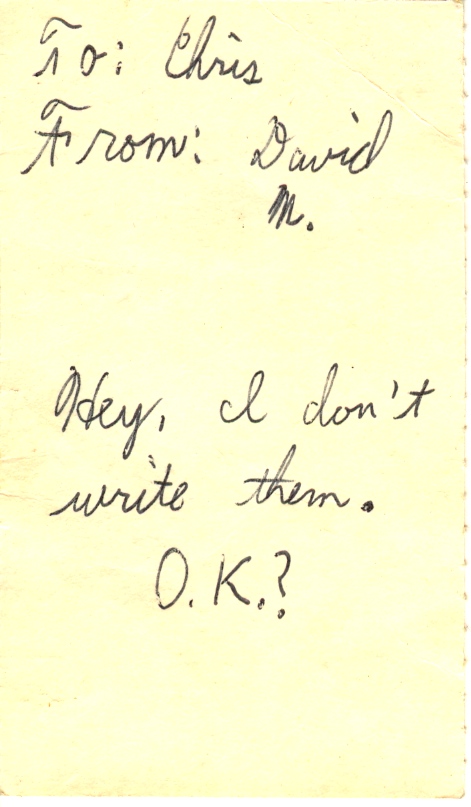 To: Chris
From: David
M.
Hey, I don't
write them.
O.K.?